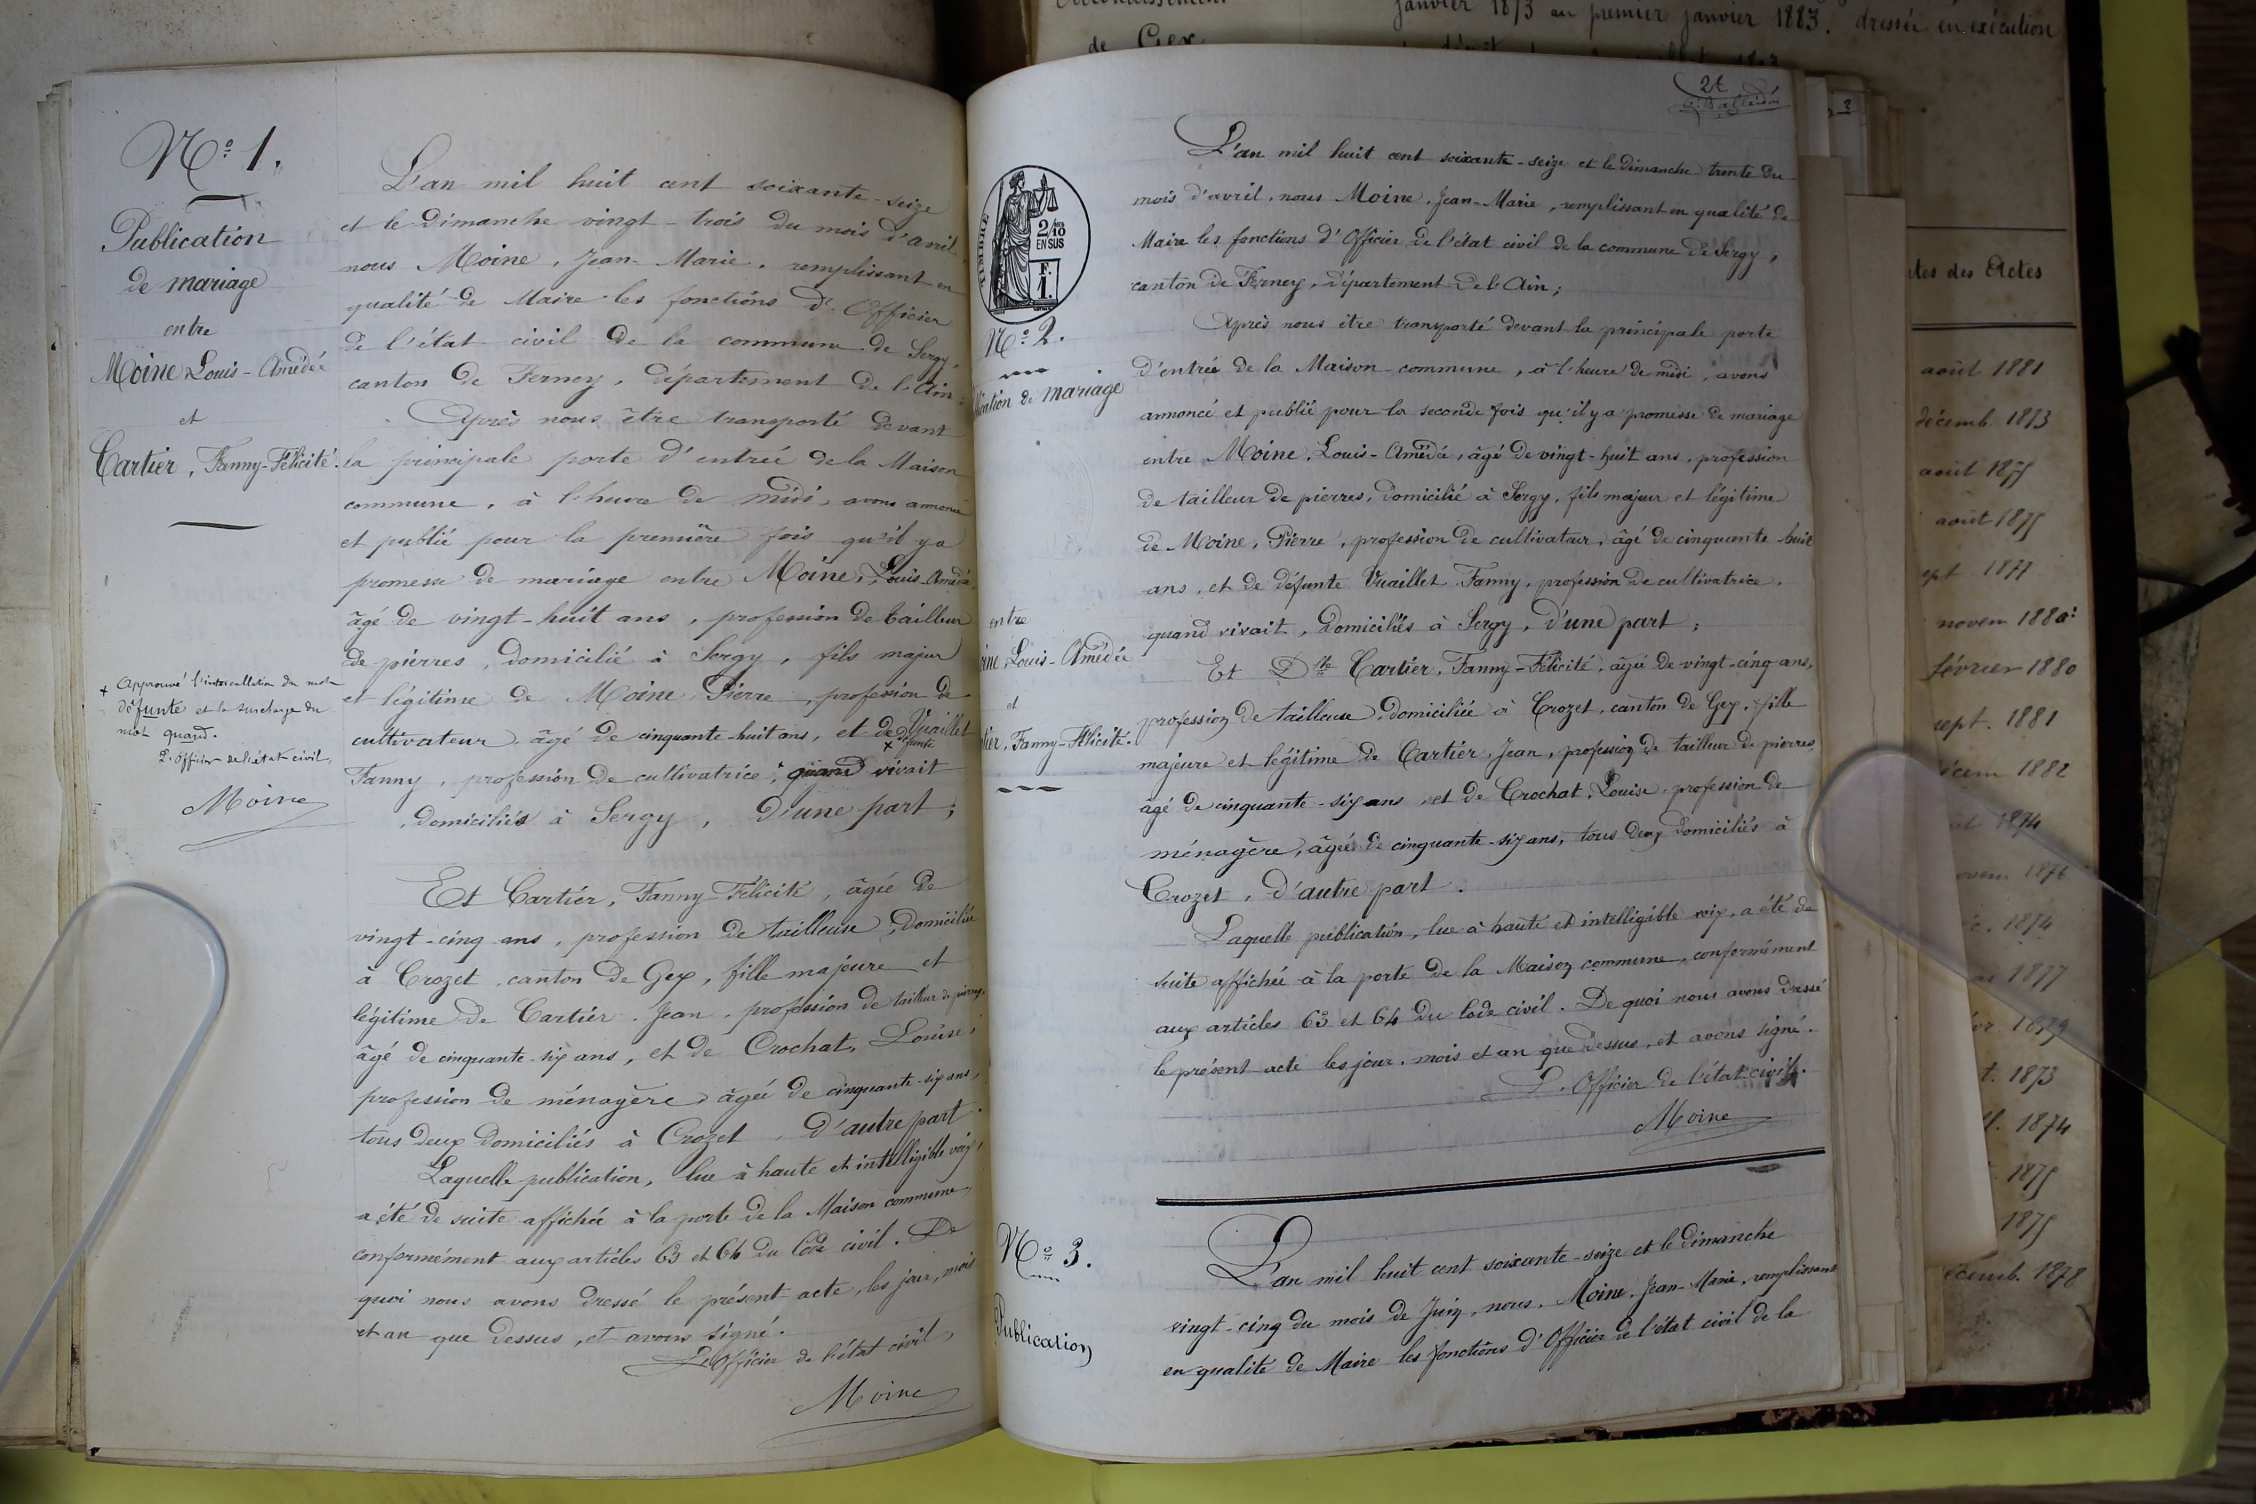 N° 1.
Publication
de mariage
entre
Moine Louis-Amédée
et
Cartier, Fanny-Félicité.
+ Approuvé l'intercallation du mot
défunte et la surcharge du
mot quand.
L'officier de l'état civil,
Moine
L'an mil huit cent soixante-seize
et le Dimanche vingt-trois du mois d'avril,
nous Moine, Jean-Marie, remplissant en
qualité de Maire les fonctions d'Officier
de l'état civil de la commune de Sergy,
canton de Ferney, département de l'Ain;
Après nous être transporté devant
la principale porte d'entrée de la Maison
commune, à l'heure de midi, avons annoncé
et publié pour la première fois qu'il y a
promesse de mariage entre Moine, Louis-Amédée,
âgé de vingt-huit ans, profession de tailleur
de pierres, domicilié à Sergy, fils majeur
et légitime de Moine Pierre, profession de
cultivateur, âgé de cinquante-huit ans, et de + défunte Vuaillet
Fanny, profession de cultivatrice, quand vivait
domiciliés à Sergy, d'une part;
Et Cartier, Fanny-Félicité, âgée de
vingt-cinq ans, profession de tailleuse, domiciliée
à Crozet, canton de Gex, fille majeure et
légitime de Cartier, Jean, profession de tailleur de pierres,
âgé de cinquante-six ans, et de Crochat, Louise,
profession de ménagère, âgée de cinquante-six ans,
tous deux domiciliés à Crozet, d'autre part.
Laquelle publication, lue à haute et intelligible voix,
a été de suite affichée à la porte de la Maison commune,
conformément aux articles 63 et 64 du Code civil. De
quoi nous avons dressé le présent acte, les jour, mois
et an que dessus, et avons signé.
L'Officier de l'état civil,
Moine
2e
TIMBRE
2/10
EN SUS
F.
1.
N° 2.
lication de mariage
entre
oine, Louis-Amédée
et
tier, Fanny-Félicité.
L'an mil huit cent soixante-seize et le Dimanche trente du
mois d'avril, nous Moine, Jean-Marie, remplissant en qualité de
Maire les fonctions d'Officier de l'état civil de la commune de Sergy,
canton de Ferney, département de l'Ain;
Après nous être transporté devant la principale porte
d'entrée de la Maison commune, à l'heure de midi, avons
annoncé et publié pour la seconde fois qu'il y a promesse de mariage
entre Moine, Louis-Amédée, âgé de vingt-huit ans, profession
de tailleur de pierres, domicilié à Sergy, fils majeur et légitime
de Moine, Pierre, profession de cultivateur, âgé de cinquante-huit
ans, et de défunte Vuaillet Fanny, profession de cultivatrice,
quand vivait, domiciliés à Sergy, d'une part;
Et Dlle Cartier, Fanny-Félicité, âgée de vingt-cinq ans,
profession de tailleuse, domiciliée à Crozet, canton de Gex, fille
majeure et légitime de Cartier, Jean, profession de tailleur de pierres,
âgé de cinquante-six ans, et de Crochat, Louise, profession de
ménagère, âgée de cinquante-six ans, tous deux domiciliés à
Crozet, d'autre part.
Laquelle publication, lue à haute et intelligible voix, a été de
suite affichée à la porte de la Maison commune, conformément
aux articles 63 et 64 du Code civil. De quoi nous avons dressé
le présent acte les jour, mois et an que dessus, et avons signé.
L'Officier de l'état civil.
Moine
N° 3.
Publication
L'an mil huit cent soixante-seize et le dimanche
vingt-cinq du mois de Juin, nous, Moine, Jean-Marie, remplissant
en qualité de Maire les fonctions d'Officier de l'état civil de la
janvier 1873 au premier janvier 1883. dressée en exécution
de Gex
ates des Actes
août 1881
décemb. 1873
août 1875
août 1875
ept 1877
novem 1880
février 1880
sept. 1881
écem 1882
1874
ovem 1876
c. 1874
1877
1879
t. 1873
l. 1874
1875
1875
écemb. 1878